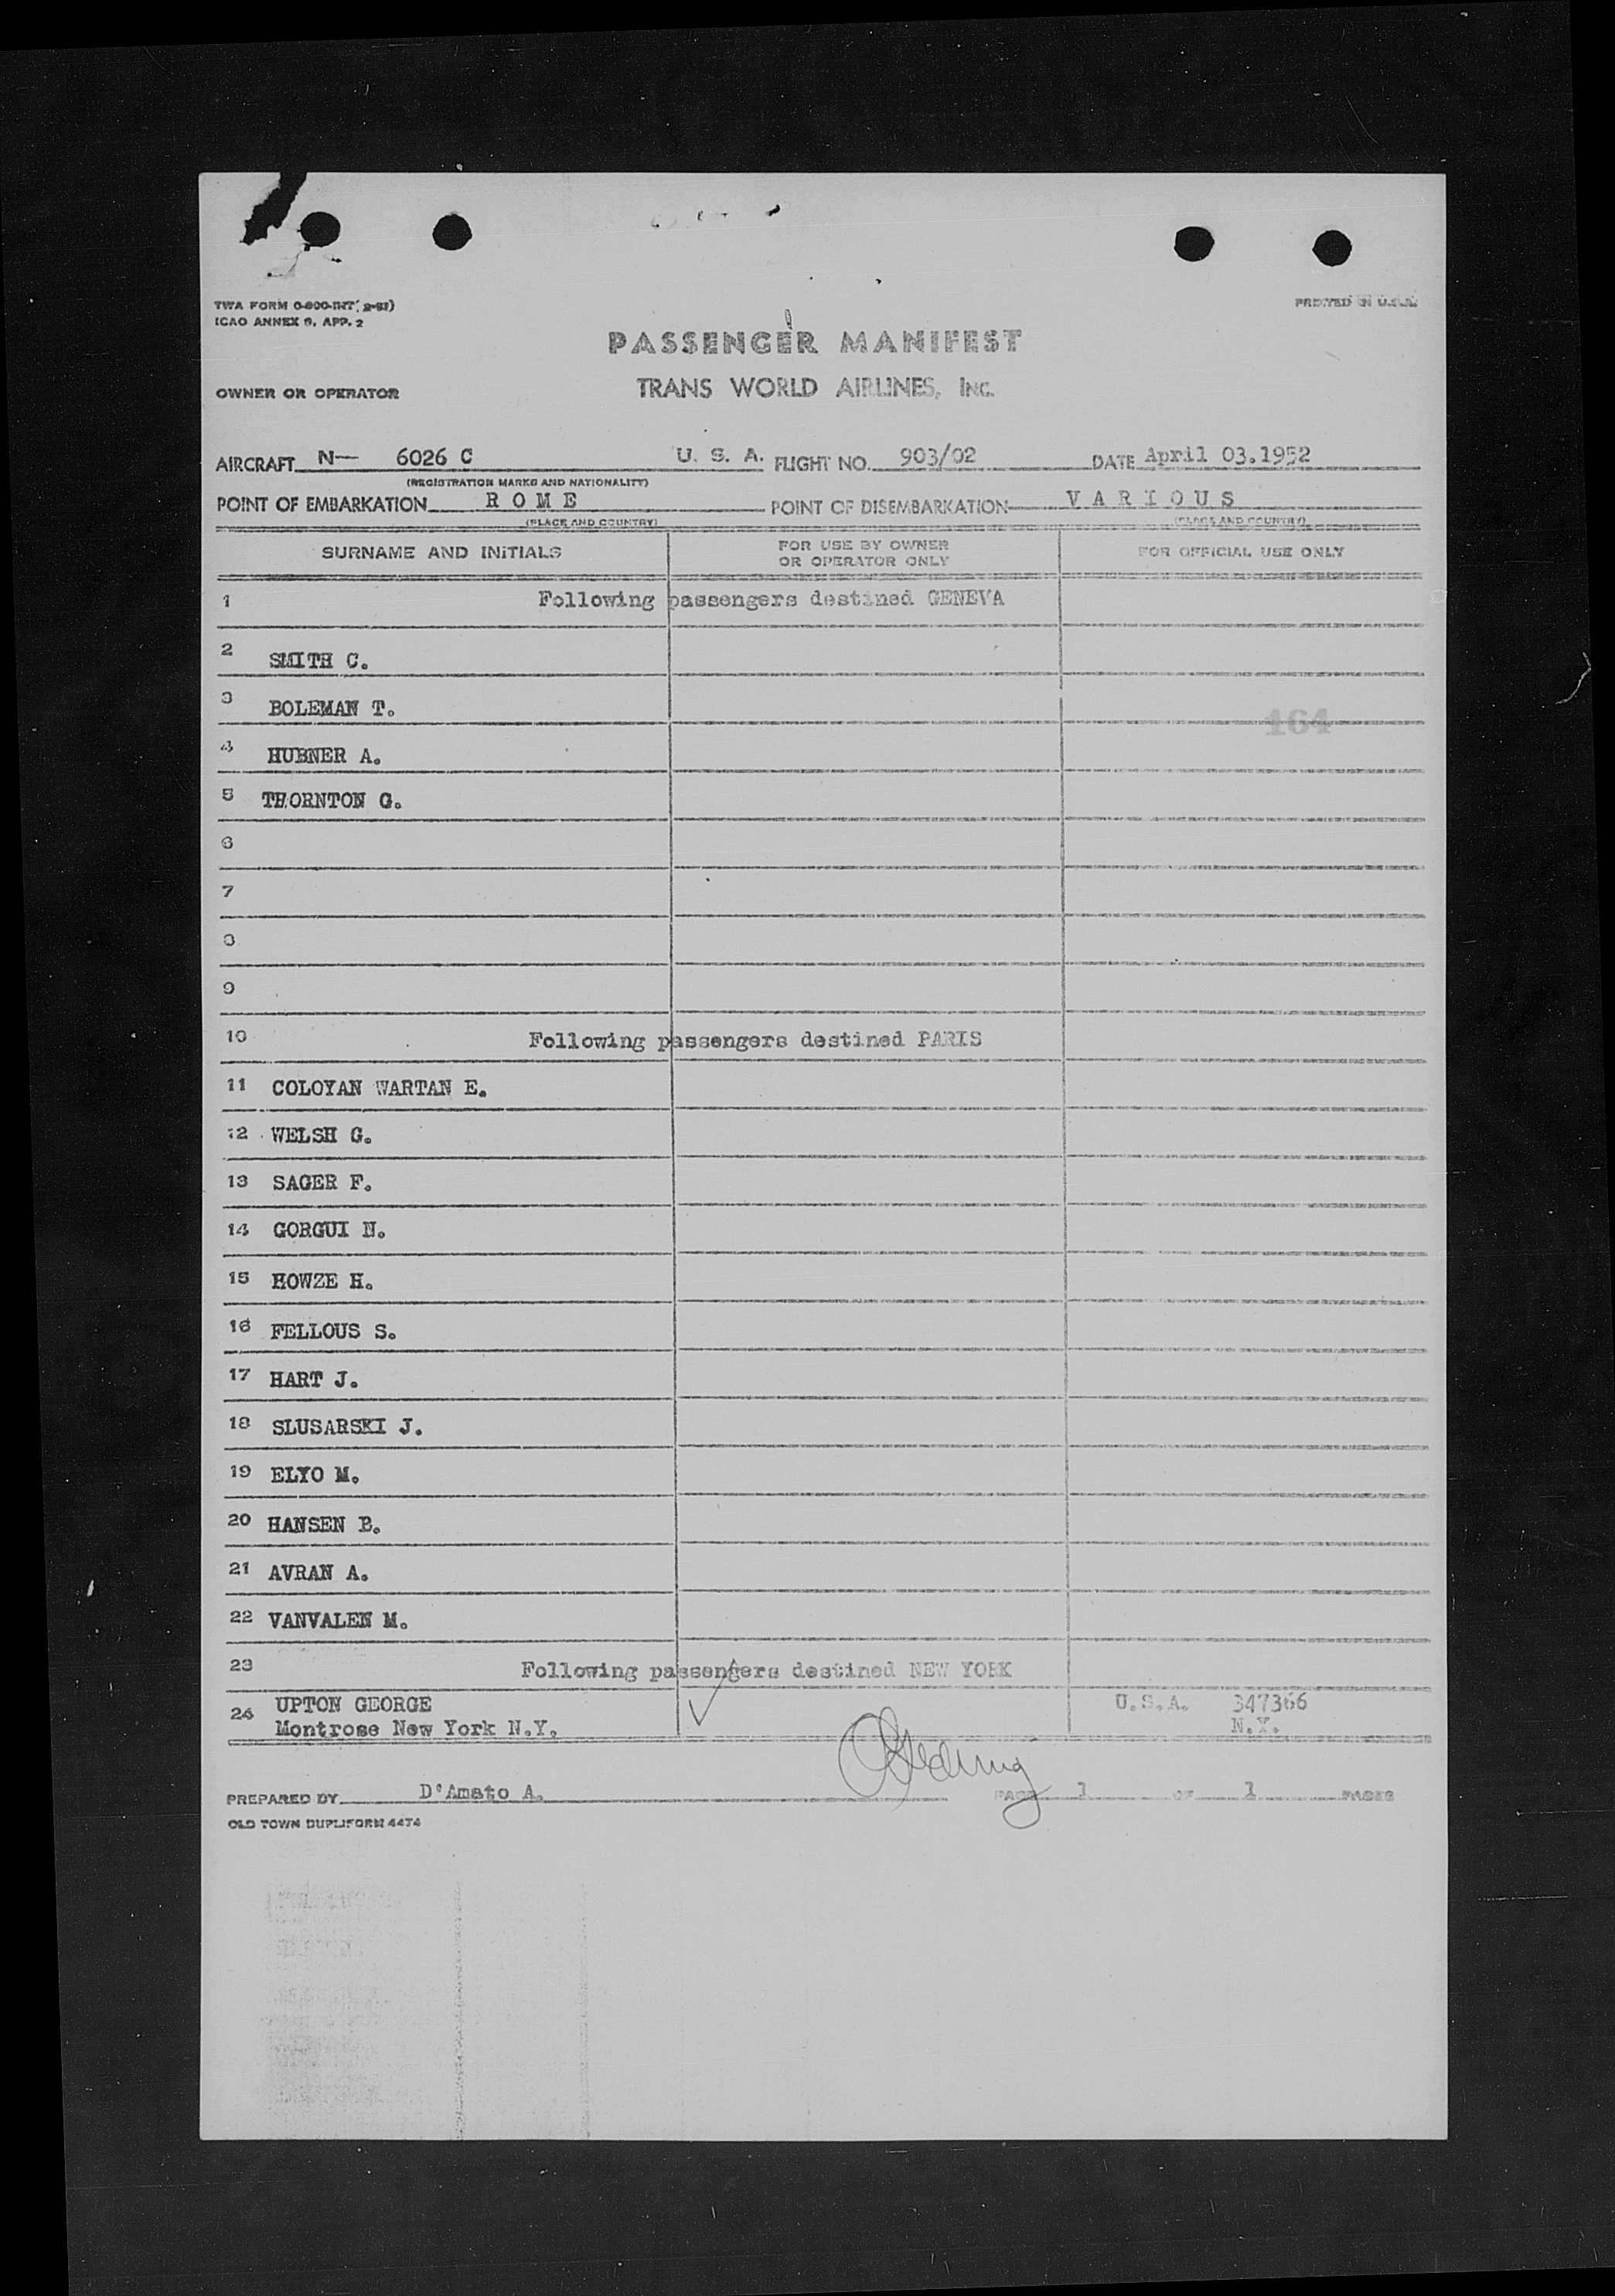 TWA FORM O-800-INT
ICAO ANNEX 9, APP. 2
PRINTED IN U.S.A.
PASSENGER MANIFEST
OWNER OR OPERATOR TRANS WORLD AIRLINES, INC.
AIRCRAFT N— 6026 C U. S. A. FLIGHT NO. 903/02 DATE April 03.1952
(REGISTRATION MARKS AND NATIONALITY)
POINT OF EMBARKATION R O M E POINT OF DISEMBARKATION V A R I O U S
(PLACE AND COUNTRY) (PLACE AND COUNTRY)
SURNAME AND INITIALS FOR USE BY OWNER OR OPERATOR ONLY FOR OFFICIAL USE ONLY
1 Following passengers destined GENEVA
2 SMITH C.
3 BOLEMAN T.
164
4 HUBNER A.
5 THORNTON G.
6
7
8
9
10 Following passengers destined PARIS
11 COLOYAN WARTAN E.
12 WELSH G.
13 SAGER F.
14 GORGUI N.
15 HOWZE H.
16 FELLOUS S.
17 HART J.
18 SLUSARSKI J.
19 ELYO M.
20 HANSEN B.
21 AVRAN A.
22 VANVALEN M.
23 Following passengers destined NEW YORK
24 UPTON GEORGE U.S.A. 347366
Montrose New York N.Y. N.Y.
PREPARED BY D'Amato A. PAGE 1 OF 1 PAGES
OLD TOWN DUPLIFORM 4474